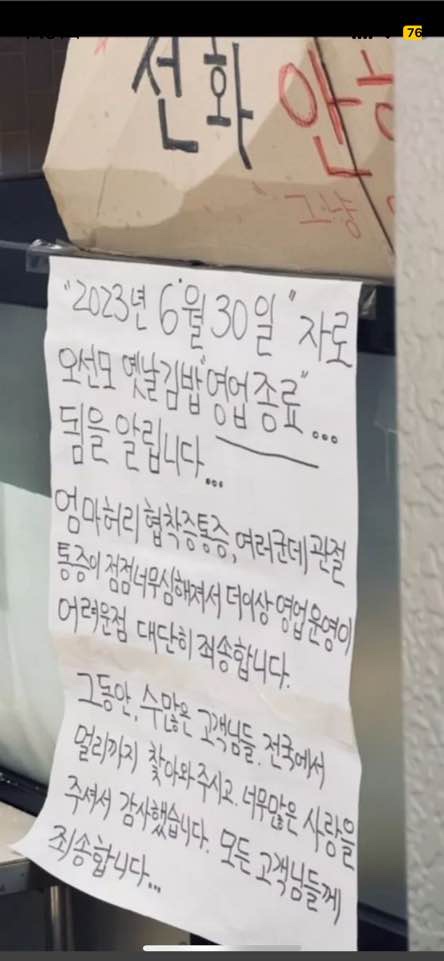 76
전화 안
그냥
"2023년 6월 30일" 자로
오선모 옛날김밥 "영업종료"...
됨을 알립니다...
엄마허리 협착증통증, 여러군데 관절
통증이 점점너무심해져서 더이상 영업운영이
어려운점 대단히 죄송합니다.
그동안, 수많은 고객님들. 전국에서
멀리까지 찾아와주시고. 너무많은 사랑을
주셔서 감사했습니다. 모든 고객님들께
죄송합니다...